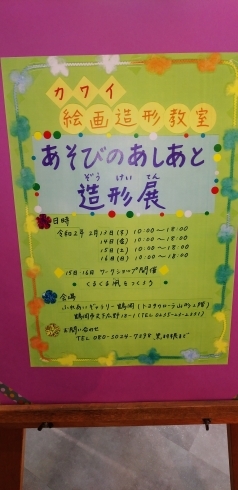 カワイ
絵画造形教室
あそびのあしあと
ぞう けい てん
造形展
日時
令和2年 2月13日(木) 10:00〜18:00
14日(金) 10:00〜18:00
15日(土) 10:00〜18:00
16日(日) 10:00〜18:00
15日・16日 ワークショップ開催
くるくる凧をつくろう
会場
ふれあいギャラリー鶴岡 (トヨタカローラ山形2階)
鶴岡市
お問い合わせ
TEL 080-5024-7298